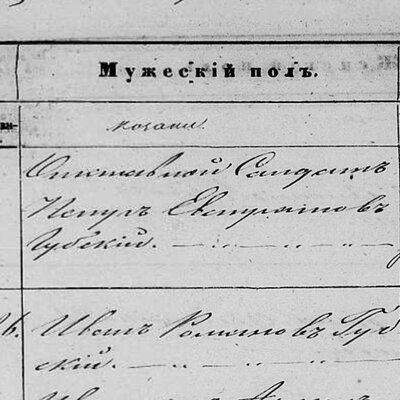 Мужескій полъ.
козаки.
Отставной Солдатъ
Петръ Евстратіевъ
Губскій. — " — " — " —
26. Иванъ Романовъ Губ
скій. — " — " — "